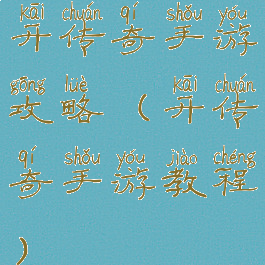 kāi chuán qí shǒu yóu
开传奇手游
gōng lüè kāi chuán
攻略（开传
qí shǒu yóu jiào chéng
奇手游教程
）